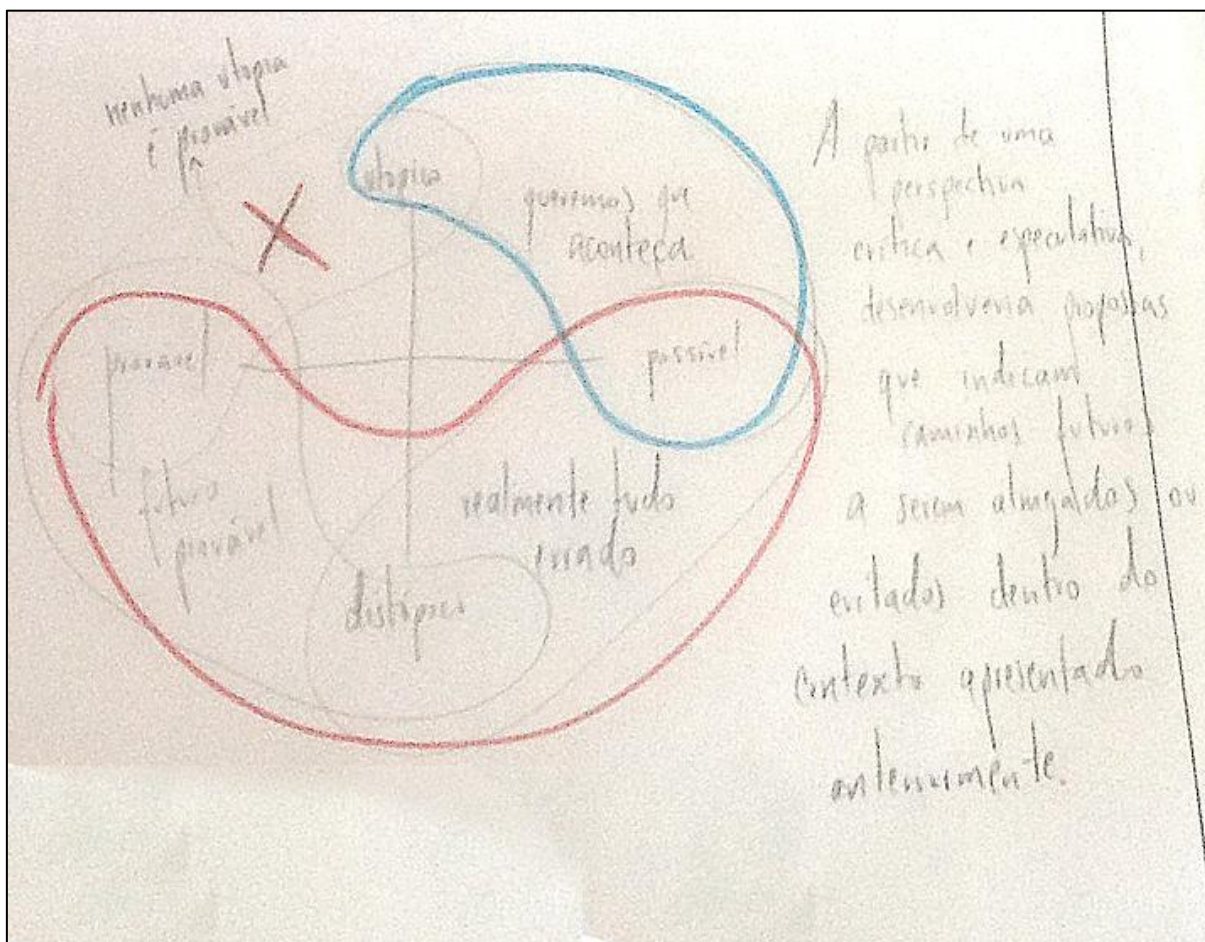 nenhuma utopia
é provável
utópico
queremos que
aconteça
provável
possível
futuro
provável
realmente tudo
errado
distópico
A partir de uma
perspectiva
crítica e especulativa,
desenvolveria propostas
que indicam
caminhos futuros
a serem almejados ou
evitados dentro do
contexto apresentado
anteriormente.